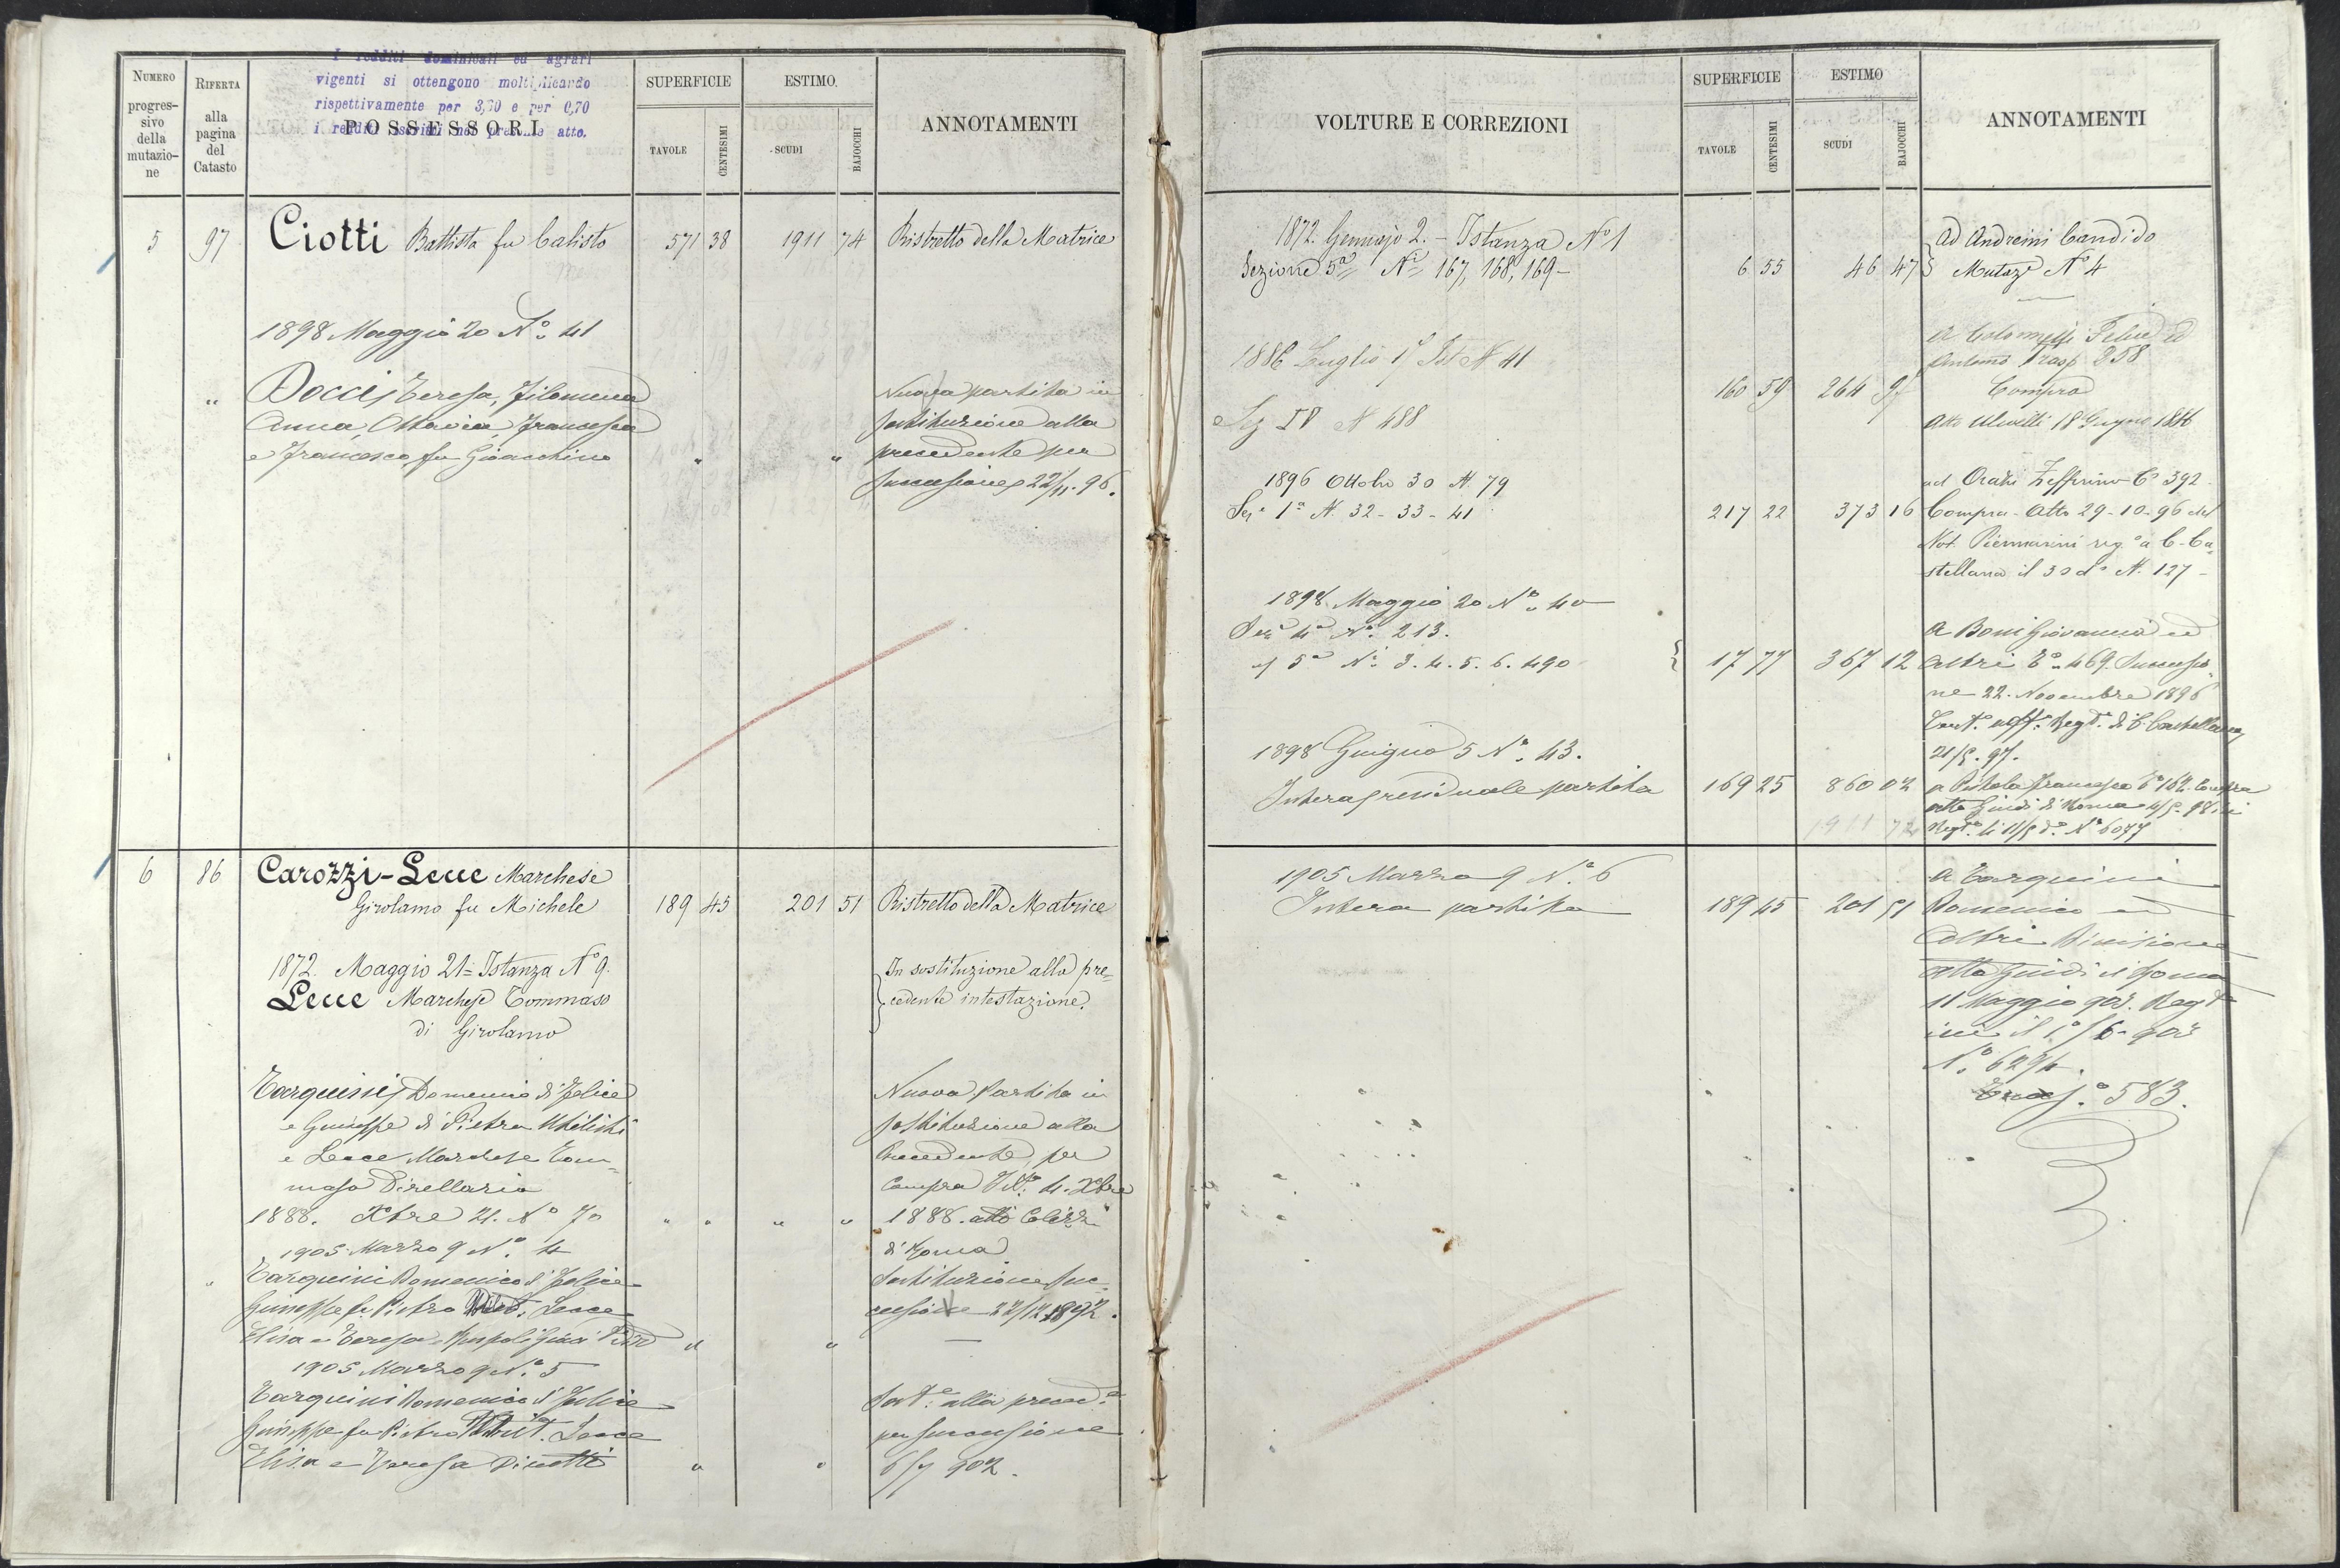 I redditi dominicali ed agrari
vigenti si ottengono moltiplicando
rispettivamente per 3,70 e per 0,70
i redditi iscritti nel presente atto.
NUMERO
progres-
sivo
della
mutazio-
ne
RIFERTA
alla
pagina
del
Catasto
POSSESSORI
SUPERFICIE
TAVOLE
CENTESIMI
ESTIMO
SCUDI
BAJOCCHI
ANNOTAMENTI
5 97 Ciotti Battista fu Calisto 571 38 1911 74 Ristretto della Matrice
1898 Maggio 20 N.° 41
" Docci Teresa, Filomena
Anna, Ottavia, Francesca
e Francesco fu Gioacchino " "
Nuova partita in
sostituzione alla
precedente per
successione 22/11. 96.
6 86 Carozzi-Lecce Marchese
Girolamo fu Michele 189 45 201 51 Ristretto della Matrice
1872. Maggio 21 = Istanza N.° 9.
Lecce Marchese Tommaso
di Girolamo
In sostituzione alla pre=
cedente intestazione.
Tarquini Domenico di Felice
e Giuseppe di Pietro Utilisti
e Lecce Marchese Tom=
maso Direttario
1888. Xbre 21. N° 70 " " " "
Nuova partita in
sostituzione alla
precedente, per
Compra 4. Xbre
1888. atto
di Roma
1905 Marzo 9 N.° 4
" Tarquini Domenico di Felice
Giuseppe fu Pietro Lecce
Elisa e Teresa " "
Sostituzione Suc=
cessione 1892.
1905 Marzo 9 N.° 5
Tarquini Domenico di Felice
Giuseppe fu Pietro Lecce
Elisa e Teresa " "
Sost.e alla preced.e
per successione
6/7 902.
VOLTURE E CORREZIONI
SUPERFICIE
TAVOLE
CENTESIMI
ESTIMO
SCUDI
BAJOCCHI
ANNOTAMENTI
1872. Gennajo 2. - Istanza N° 1
Sezione 5a Ni 167, 168, 169 - 6 55 46 47
Ad Andreini Candido
Mutaze N° 4
1886 Luglio 1° Ist N 41
Sez IV N 488 160 59 264 97
Trasp 258
Compra
Atto 18 Giugno 1886
1896 Ottobre 30 N. 79
Sez.e 1a N. 32 - 33 - 41 217 22 373 16
ad Zeffirino C° 392
Compra - Atto 29-10-96 del
Not. Piermarini reg.° a C. Ca=
stellana il 30 d° N. 127 -
1898 Maggio 20 N.° 40
Sez.e 4a N.° 213.
" 5a Ni 3. 4. 5. 6. 490 17 77 367 12
A Boni Giovanna ed
altri 469. Successio=
ne 22. Novembre 1896
Regto di C. Castellana
21/5. 97.
1898 Giugno 5 N.° 43.
Intera residuale partita 169 25 860 02
1911 74
a Francesco 162. Compra
atto Guidi di Roma 4/5. 98 ivi
Regto li 11/5 d° N° 6077
1905 Marzo 9 N.° 6
Intera partita 189 45 201 51
A Tarquini
Domenico ed
altri Divisione
atto Guidi di Roma
11 Maggio 903. Regto
ivi il 1°/6 - 903
N.° 6294.
583.